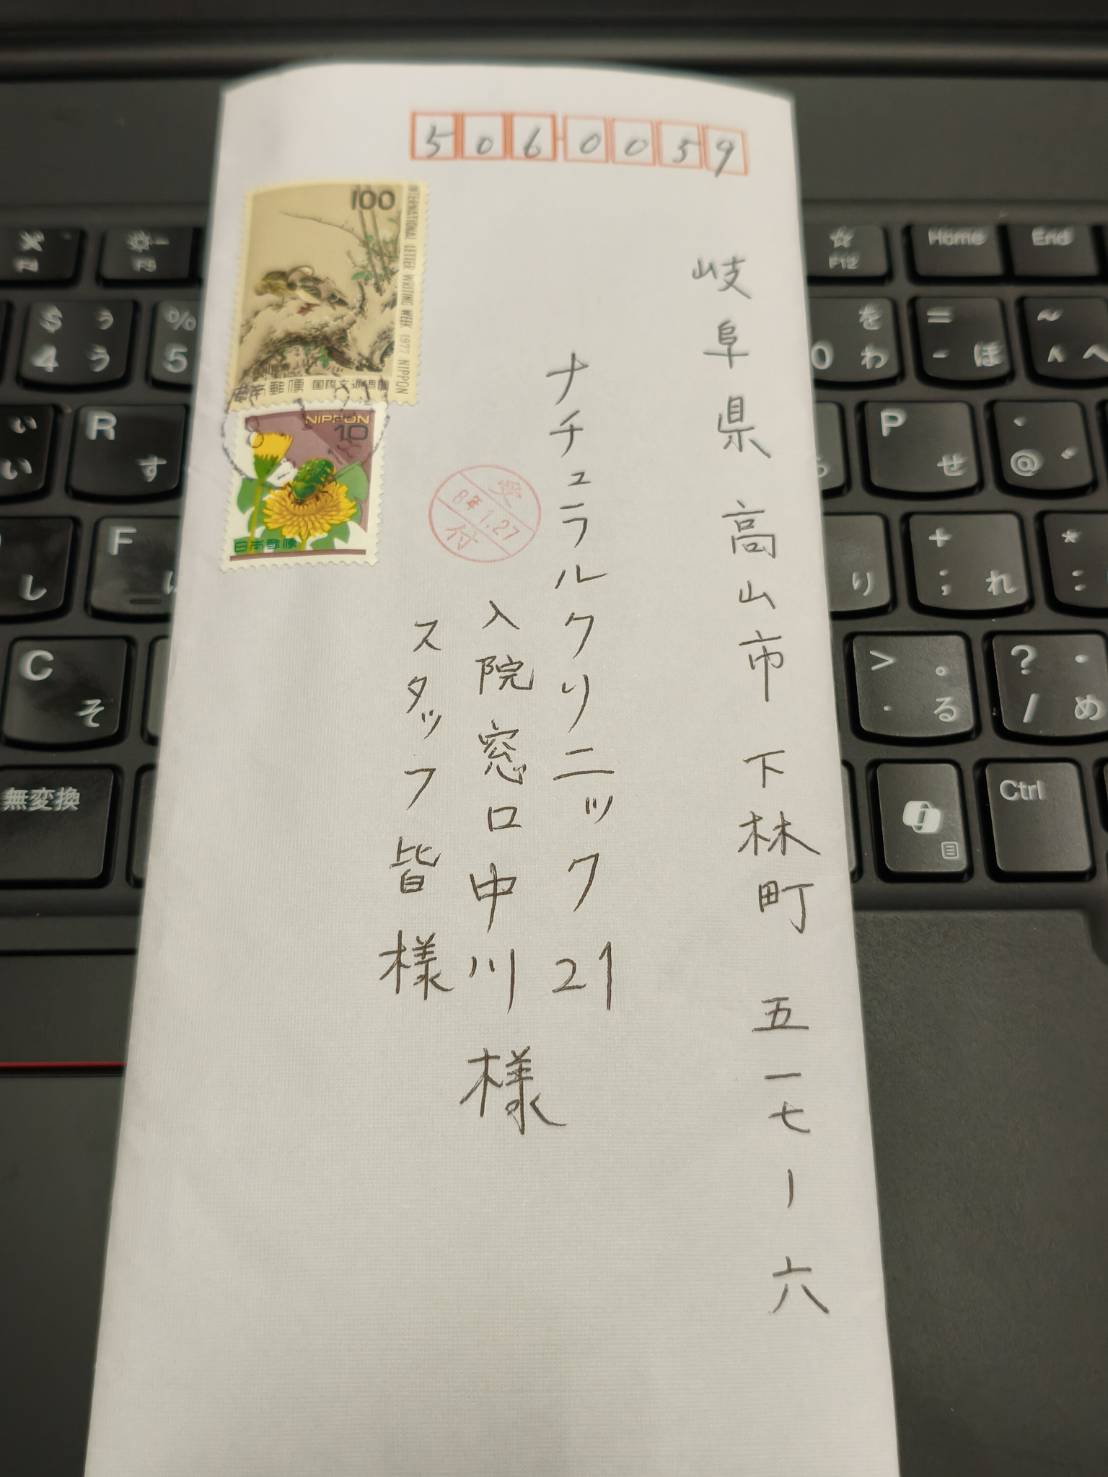 5060059
岐阜県高山市下林町五一七ー六
ナチュラルクリニック21
入院窓口中川様
スタッフ皆様
100
INTERNATIONAL LETTER WRITING WEEK 1977 NIPPON
国際文通週間
NIPPON
10
日本郵便
受
8年1.27
付
F4
F5
F12
Home
End
$ ぅ
4 う
%
5
を
0 わ
=
- ほ
~
^ へ
ぃ
い
R
す
P
せ
@
F
し
り
+
; れ
*
:
C
そ
> 。
. る
? ・
/ め
無変換
Ctrl